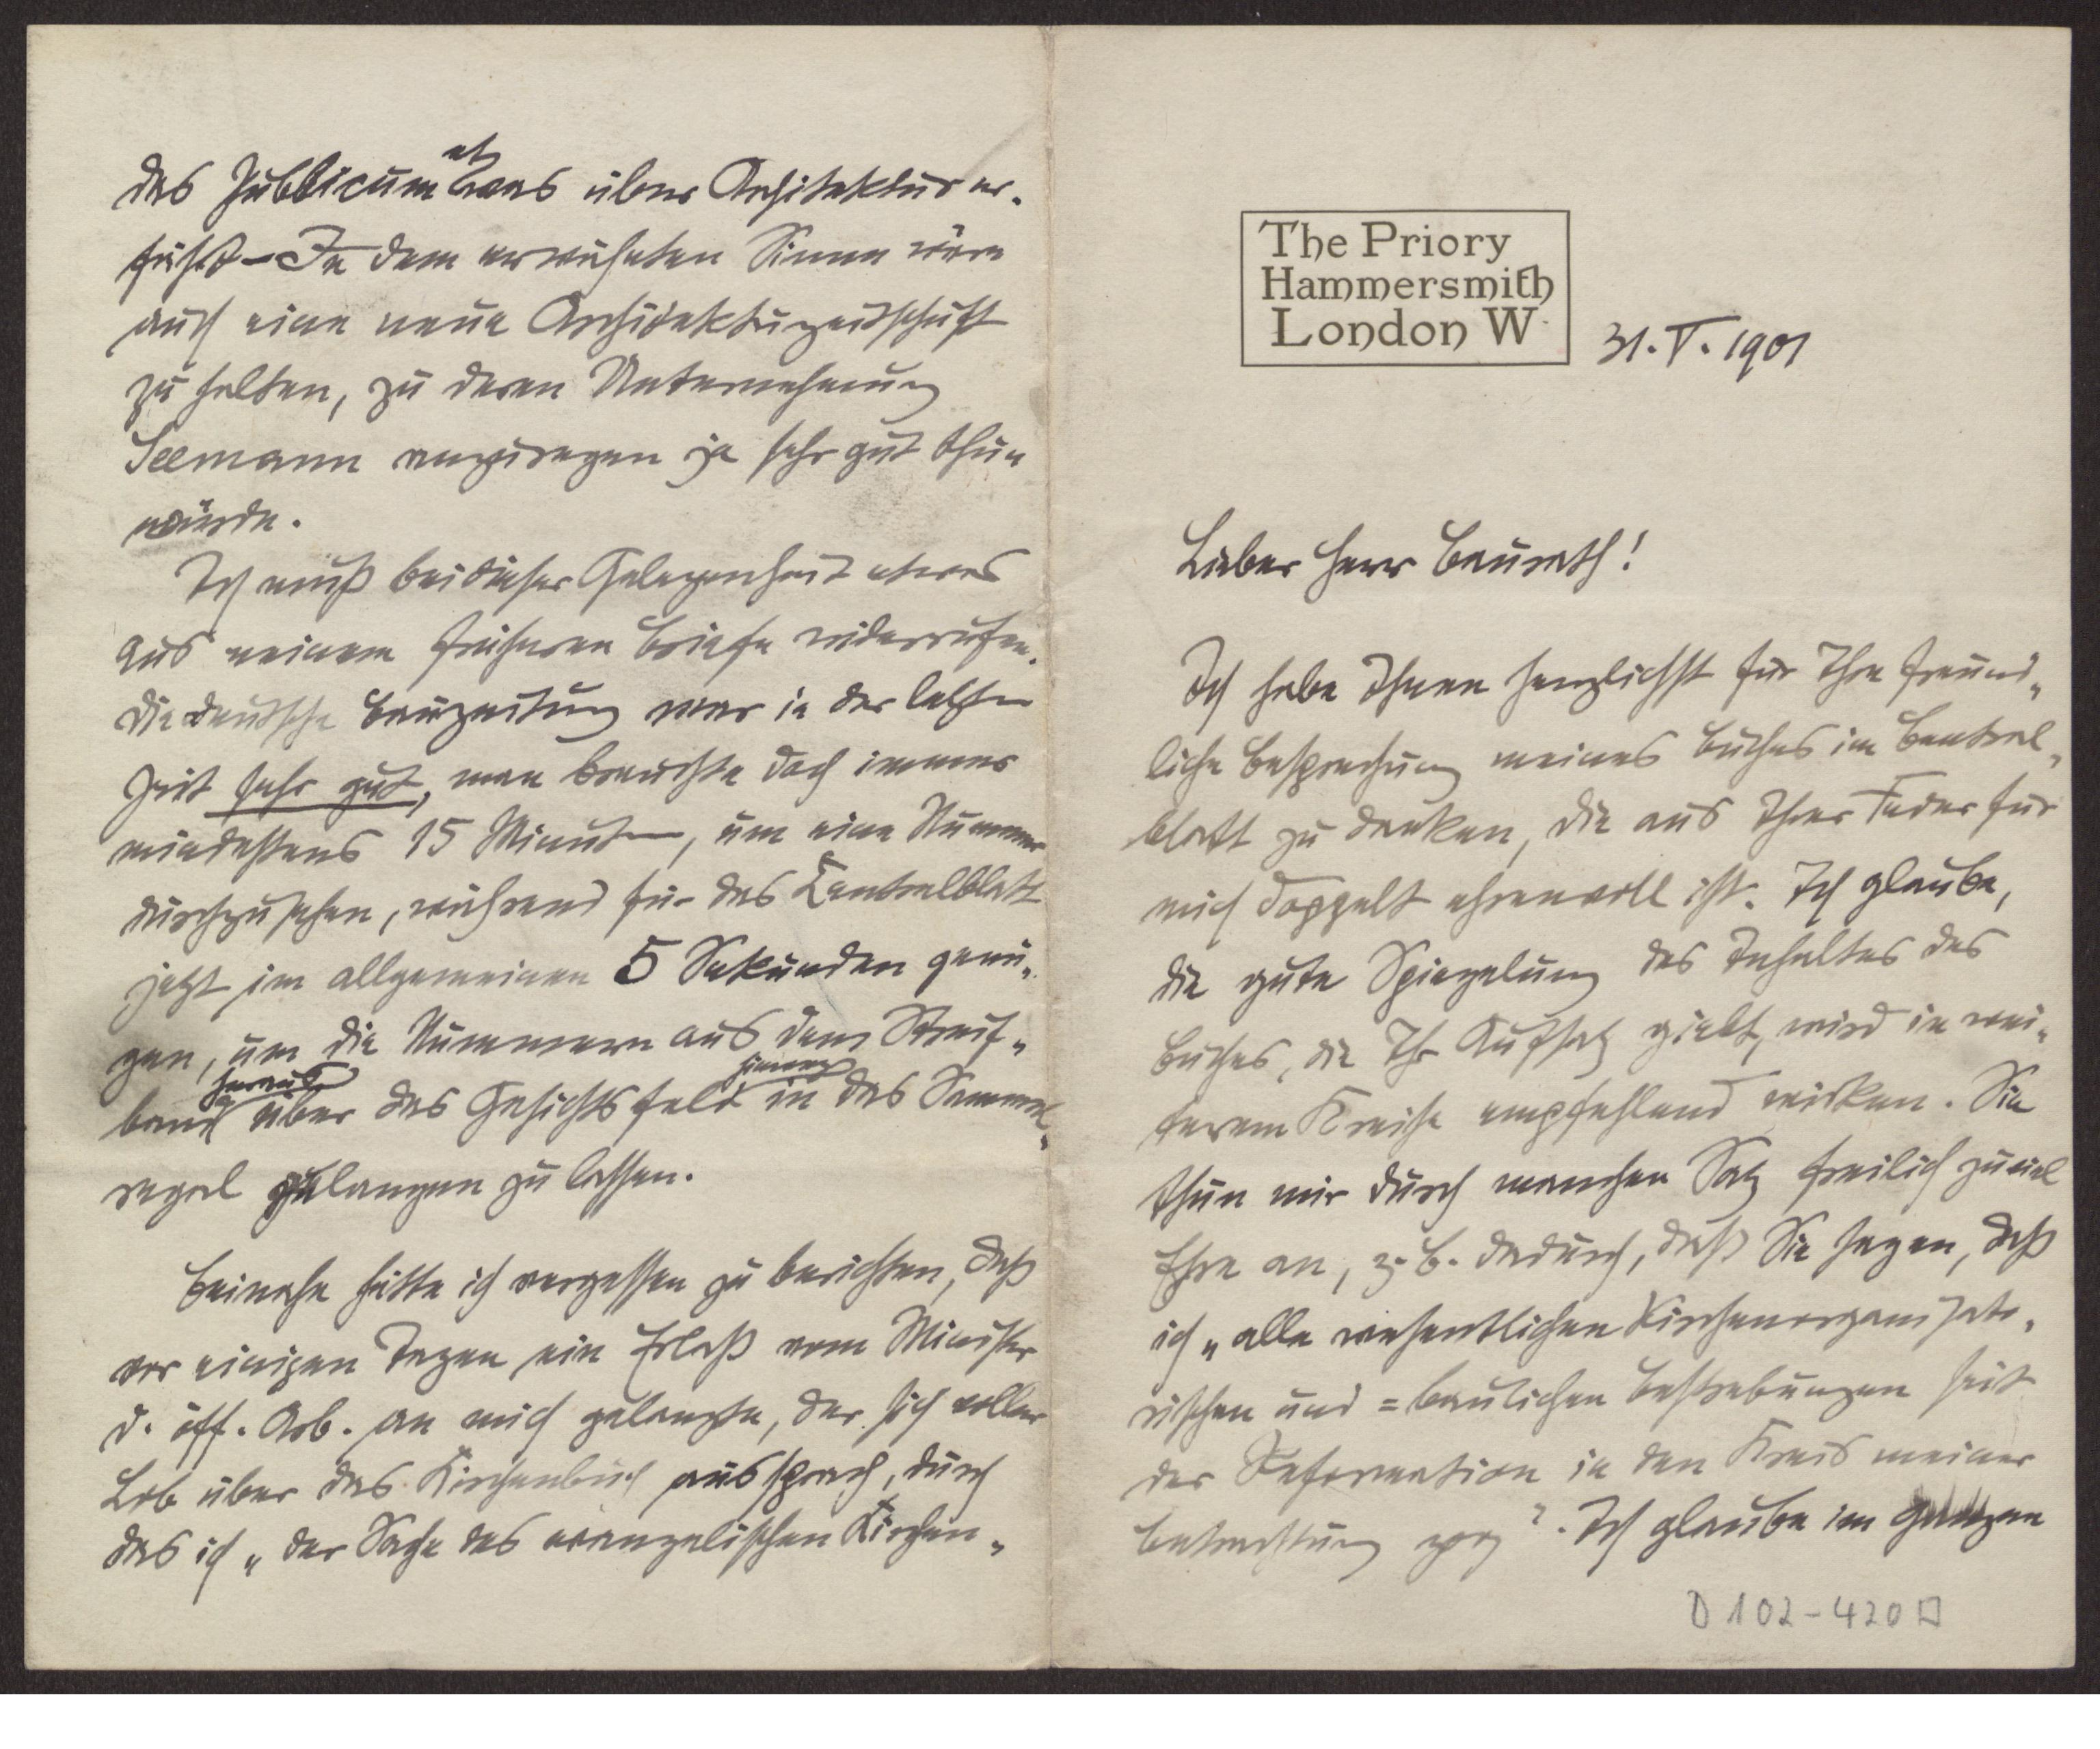 The Priory
Hammersmith
London W
31. V. 1901
Lieber Herr Baurath!
Ich habe Ihnen herzlichst für Ihre freund-
liche Besprechung meines Buches im Central-
blatt zu danken, die aus Ihrer Feder für
mich doppelt ehrenvoll ist. Ich glaube,
die gute Spiegelung des Inhaltes des
Buches, die Ihr Aufsatz giebt, wird in wei-
terem Kreise empfehlend wirken. Sie
thun mir durch manchen Satz freilich zuviel
Ehre an, z. B. dadurch, daß Sie sagen, daß
ich „alle wesentlichen Kirchenorganisato-
rischen und =baulichen Bestrebungen seit
der Reformation in den Kreis meiner
Betrachtung zog“. Ich glaube im ganzen
D 102-420
das Publicum etwas über Architektur er-
fährt – In dem erwähnten Sinne wäre
auch eine neue Architekturzeitschrift
zu halten, zu deren Unternehmung
Seemann anzuregen ja sehr gut thun
würde.
Ich muß bei dieser Gelegenheit etwas
aus meinem früheren Briefe widerrufen.
Die deutsche Bauzeitung war in der letzten
Zeit sehr gut, man brauchte doch immer
mindestens 15 Minuten, um eine Nummer
durchzusehen, während für das Centralblatt
jetzt im allgemeinen 5 Sekunden genü-
gen, um die Nummern aus dem Streif-
band heraus über das Gesichtsfeld hinweg in das Sammel-
regal gelangen zu lassen.
Beinahe hätte ich vergessen zu berichten, daß
vor einigen Tagen ein Erlaß vom Minister
d. öff. Arb. an mich gelangte, der sich voller
Lob über das Kirchenbuch aussprach, durch
das ich „der Sache des evangelischen Kirchen-